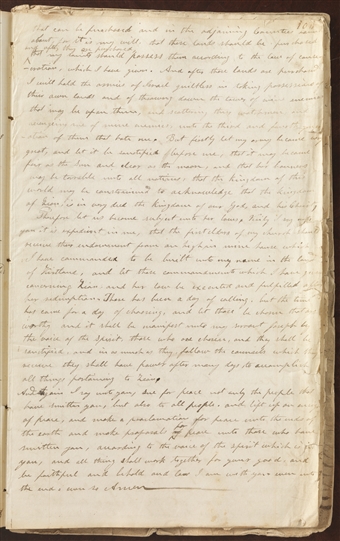 that can be purchased, and in the adjoining counties round
about; for it is my will that these lands should be purchased
and after they are purchased
that my saints should possess them according to the laws of consec-
ration, which I have given. And after these lands are purchased
I will hold the armies of Israel guiltless in taking possession of
their own lands and of throwing down the towers of mine enemies
that may be upon them, and scattering their watchmen and
avenging me of mine enemies, unto the third and fourth
ration of them that hate me. But firstly let my army become very
great, and let it be sanctified before me, that it may become
fair as the sun and clear as the moon, and that her banners
may be terrible unto all nations; that the kingdoms of this
world may be constrained to acknowledge that the kingdom
of Zion, is in very deed the kingdom of our God, and his Christ
Therefor let us become subject unto her laws, Verily I say unto
you it is expedient in me, that the first elders of my church should
receive their endowment from on high in mine house which
I have commanded to be built unto my name in the land
of Kirtland, and let those commandments which I have given
concerning Zion, and her law be executed and fulfilled after
her redemption. There has been a day of calling, but the time
has come for a day of choosing, and let those be chosen that are
worthy, and it shall be manifest unto my servent Joseph by
the voice of the spirit, those who are chosen, and they shall be
sanctified, and in as much as they follow the councils which they
receive they shall have power after many days to accomplish
all things pertaining to Zion
And again I say unto you, sue for peace not only the people that
have smitten you, but also to all people, and lift up an ensign
of peace, and make a proclamation for peace unto the ends of
the earth, and make proposals for peace unto those who have
smitten you, according to the voice of the spirit which is in
you, and all things shall work together for your good, and
be faithful and behold and lo I am with you even unto
the end, even so Amen